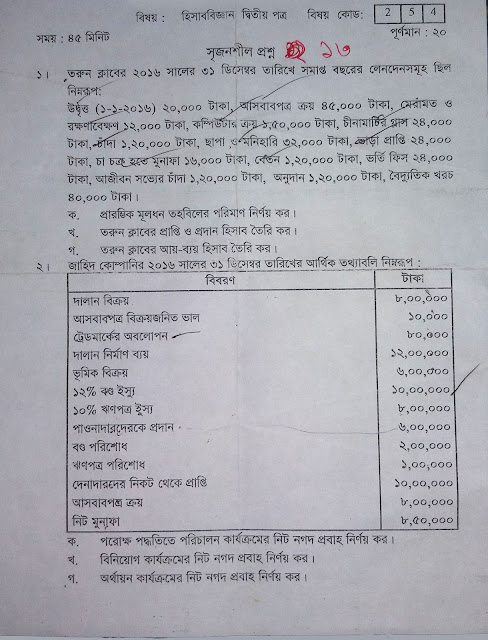 বিষয় : হিসাববিজ্ঞান দ্বিতীয় পত্র বিষয় কোড: 2 5 4
সময় : ৪৫ মিনিট পূর্ণমান : ২০
সৃজনশীল প্রশ্ন ১৩
১। তরুন ক্লাবের ২০১৬ সালের ৩১ ডিসেম্বর তারিখে সমাপ্ত বছরের লেনদেনসমূহ ছিল
নিম্নরূপ:
উর্দ্বৃত্ত (১-১-২০১৬) ২০,০০০ টাকা, আসবাবপত্র ক্রয় ৪৫,০০০ টাকা, মেরামত ও
রক্ষণাবেক্ষণ ১২,০০০ টাকা, কম্পিউটার ক্রয় ১,৫০,০০০ টাকা, চীনামাটির গ্লাস ২৪,০০০
টাকা, চাঁদা ১,২০,০০০ টাকা, ছাপা ও মনিহারি ৩২,০০০ টাকা, ভাড়া প্রাপ্তি ২৪,০০০
টাকা, চা চক্র হতে মুনাফা ১৬,০০০ টাকা, বেতন ১,২০,০০০ টাকা, ভর্তি ফিস ২৪,০০০
টাকা, আজীবন সভ্যের চাঁদা ১,২০,০০০ টাকা, অনুদান ১,২০,০০০ টাকা, বৈদ্যুতিক খরচ
৪০,০০০ টাকা।
ক. প্রারম্ভিক মূলধন তহবিলের পরিমাণ নির্ণয় কর।
খ. তরুন ক্লাবের প্রাপ্তি ও প্রদান হিসাব তৈরি কর।
গ. তরুন ক্লাবের আয়-ব্যয় হিসাব তৈরি কর।
২। জাহিদ কোম্পানির ২০১৬ সালের ৩১ ডিসেম্বর তারিখের আর্থিক তথ্যাবলি নিম্নরূপ :
বিবরণ টাকা
দালান বিক্রয় ৮,০০,০০০
আসবাবপত্র বিক্রয়জনিত ভাল ১০,০০০
ট্রেডমার্কের অবলোপন ৮০,০০০
দালান নির্মাণ ব্যয় ১২,০০,০০০
ভূমিক বিক্রয় ৬,০০,০০০
১২% বন্ড ইস্যু ১০,০০,০০০
১০% ঋণপত্র ইস্যু ৮,০০,০০০
পাওনাদারদেরকে প্রদান ৬,০০,০০০
বণ্ড পরিশোধ ২,০০,০০০
ঋণপত্র পরিশোধ ১,০০,০০০
দেনাদারদের নিকট থেকে প্রাপ্তি ১০,০০,০০০
আসবাবপত্র ক্রয় ৮,০০,০০০
নিট মুনাফা ৮,৫০,০০০
ক. পরোক্ষ পদ্ধতিতে পরিচালন কার্যক্রমের নিট নগদ প্রবাহ নির্ণয় কর।
খ. বিনিয়োগ কার্যক্রমের নিট নগদ প্রবাহ নির্ণয় কর।
গ. অর্থায়ন কার্যক্রমের নিট নগদ প্রবাহ নির্ণয় কর।